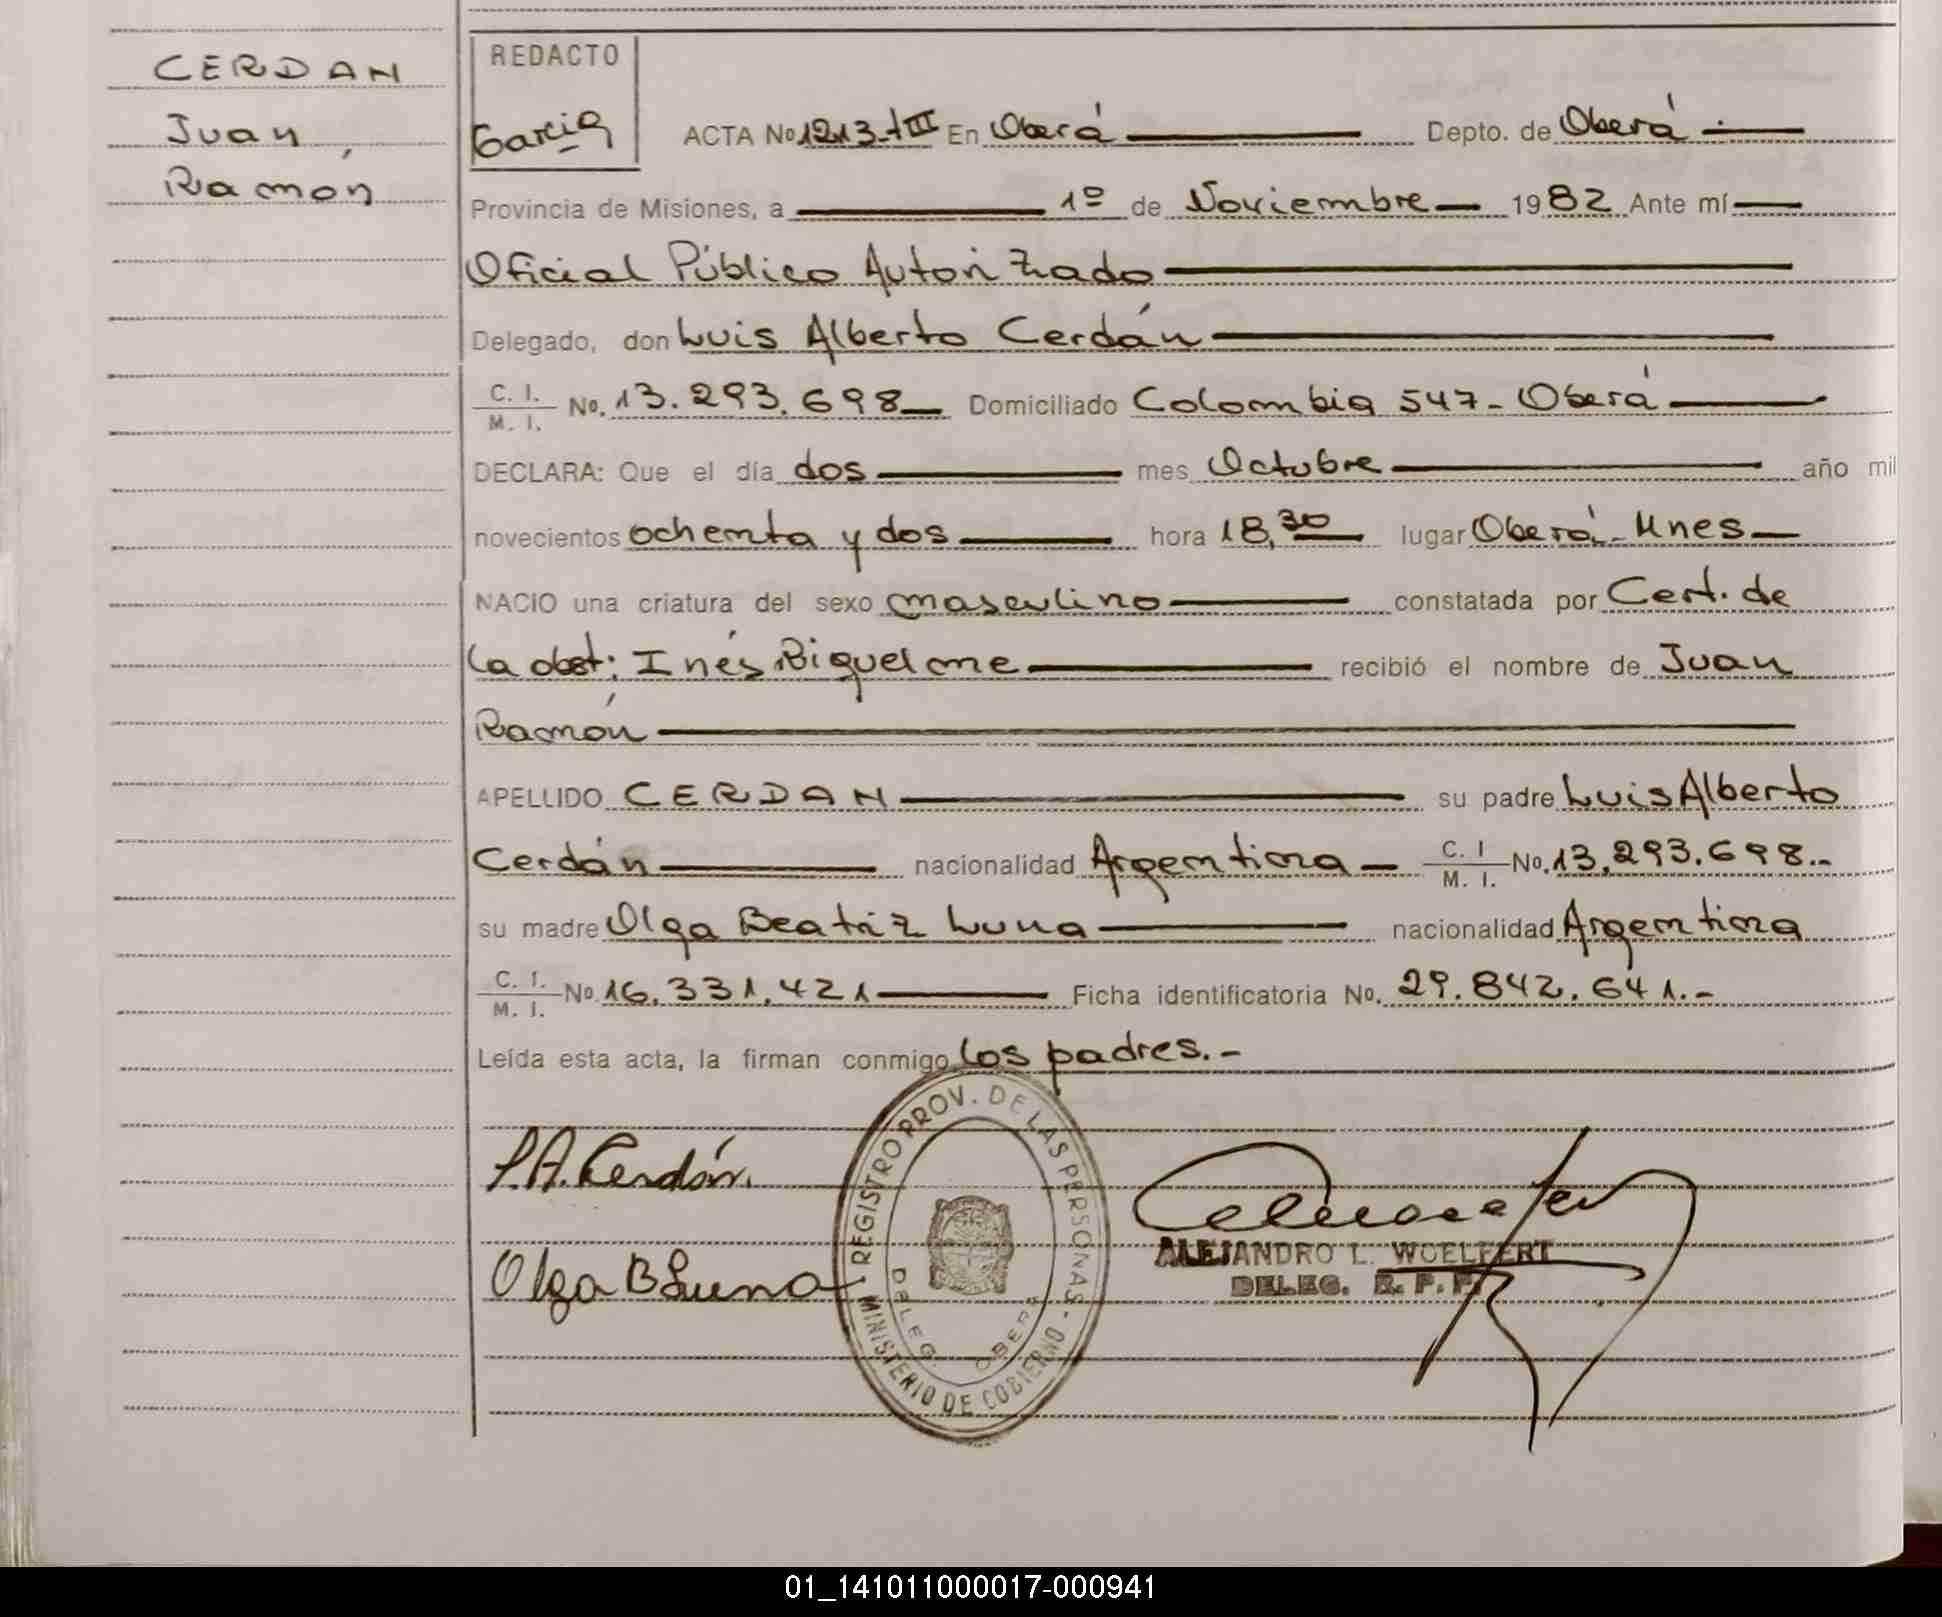 CERDAN
Juan
Ramón
REDACTO
Garcia
ACTA No 1213-tIII En Oberá Depto. de Oberá
Provincia de Misiones, a 1º de Noviembre 1982 Ante mí
Oficial Público Autorizado
Delegado, don Luis Alberto Cerdán
C. I. M. I. No. 13.293.698 Domiciliado Colombia 547- Oberá
DECLARA: Que el día dos mes Octubre año mil
novecientos ochenta y dos hora 18,30 lugar Oberá- Mnes
NACIO una criatura del sexo masculino constatada por Cert. de
la obst: Inés Riquelme recibió el nombre de Juan
Ramón
APELLIDO CERDAN su padre Luis Alberto
Cerdán nacionalidad Argentina C. I M. I. No. 13.293.698.-
su madre Olga Beatriz Luna nacionalidad Argentina
C. I. M. I. No 16.331.421 Ficha identificatoria No. 29.842.641.-
Leída esta acta, la firman conmigo los padres.-
L.A. Cerdán.
Olga B Luna
REGISTRO PROV. DE LAS PERSONAS - MINISTERIO DE GOBIERNO
DELEG. OBERA
ALEJANDRO L. WOELFERT
DELEG. R. P. P.
01_141011000017-000941